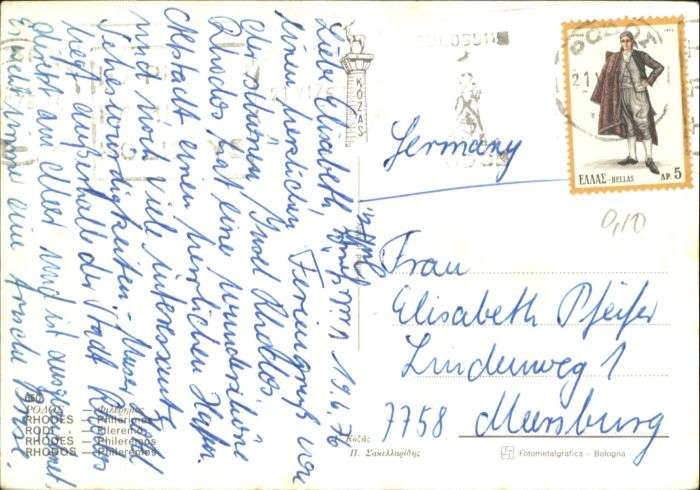 Liebe Elisabeth, 19.6.76
einen herzlichen Feriengruß von
der schönen Insel Rhodos.
Rhodos hat eine wunderschöne
Altstadt einen herrlichen Hafen
und noch viele interessante
Sehenswürdigkeiten. Unser Hotel
liegt außerhalb der Stadt Rhodos
direkt am Meer und ist
Es weht immer eine frische
ΡΟΔΟΣ — Φιλέρημος
RHODES — Philerimos
RODI — Fileremo
RHODES — Phileremos
RHODOS — Phileremos
ΚΟΖΑΣ
Κοζᾶς
Π. Σακελλαρίδης
ΕΛΛΑΣ-HELLAS ΔΡ. 5
Germany
0,10
Frau
Elisabeth Pfeifer
Lindenweg 1
7758 Meersburg
Fotometalgrafica - Bologna